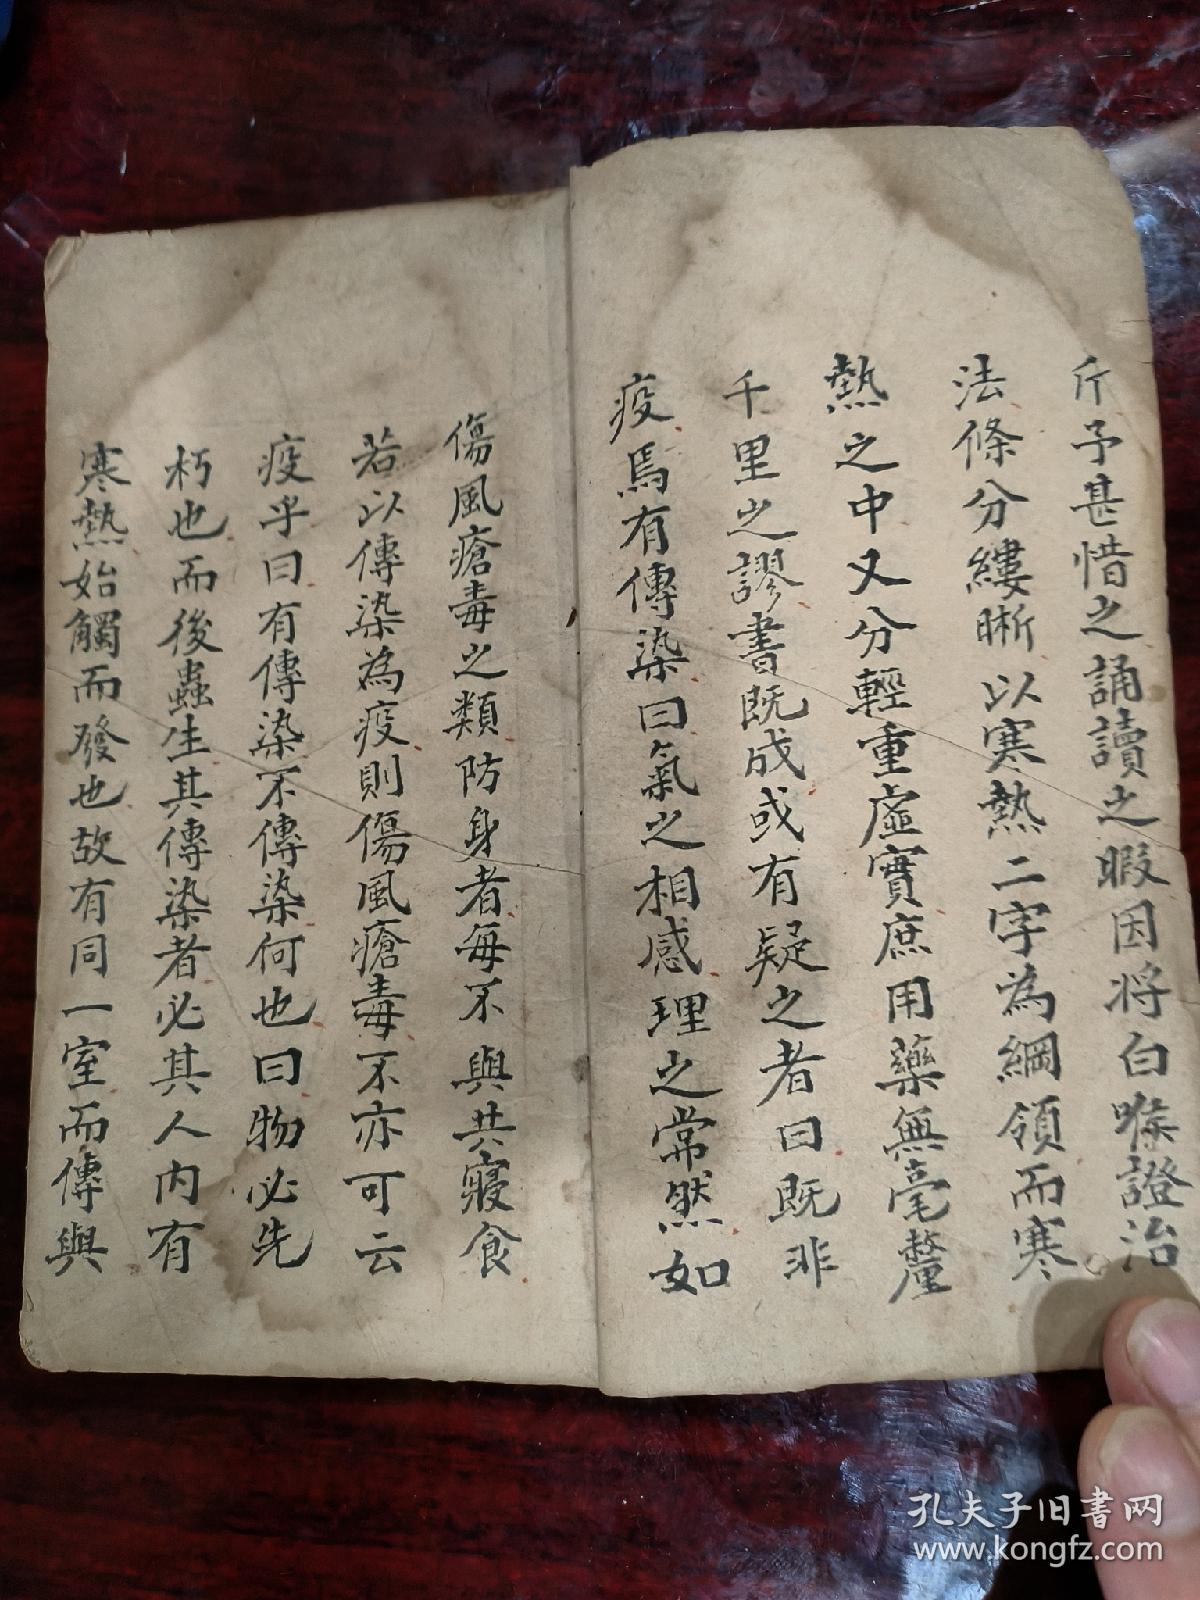 斤予甚惜之誦讀之暇因將白喉證治
法條分縷晰以寒熱二字為綱領而寒
熱之中又分輕重虛實庶用藥無毫釐
千里之謬書既成或有疑之者曰既非
疫焉有傳染曰氣之相感理之常然如
傷風瘡毒之類防身者每不與共寢食
若以傳染為疫則傷風瘡毒不亦可云
疫乎曰有傳染不傳染何也曰物必先
朽也而後蟲生其傳染者必其人内有
寒熱始觸而發也故有同一室而傳與
孔夫子旧书网
www.kongfz.com